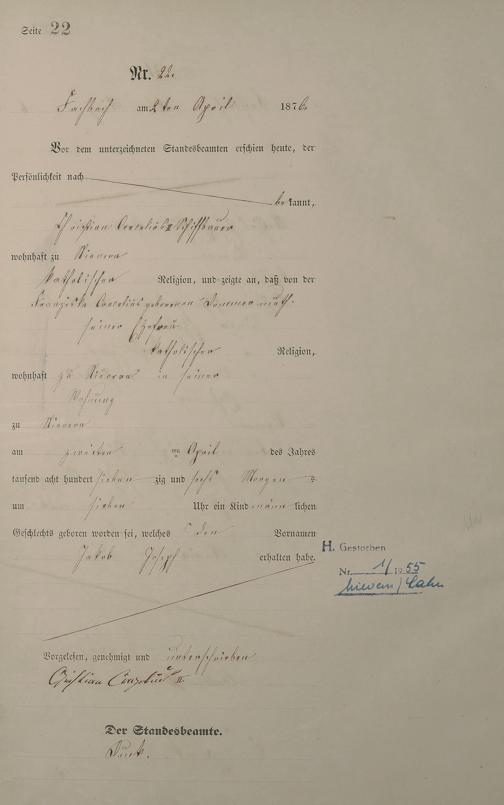 Seite 22
Nr. 22.
Fachbach am 2ten April 1876
Vor dem unterzeichneten Standesbeamten erschien heute, der
Persönlichkeit nach
be kannt,
Christian Cornelius II Schiffbauer
wohnhaft zu Nievern
katholischer Religion, und zeigte an, daß von der
Franziska Cornelius geborenen
seiner Ehefrau
katholischer Religion,
wohnhaft zu Nievern in seiner
Wohnung
zu Nievern
am zweiten April des Jahres
tausend acht hundert sieben zig und sechs Morgens
um sieben Uhr ein Kind männlichen
Geschlechts geboren worden sei, welches den Vornamen
Jakob Joseph erhalten habe.
H. Gestorben
Nr. 1/1955
Nievern/Lahn
Vorgelesen, genehmigt und unterschrieben
Christian Cornelius II.
Der Standesbeamte.